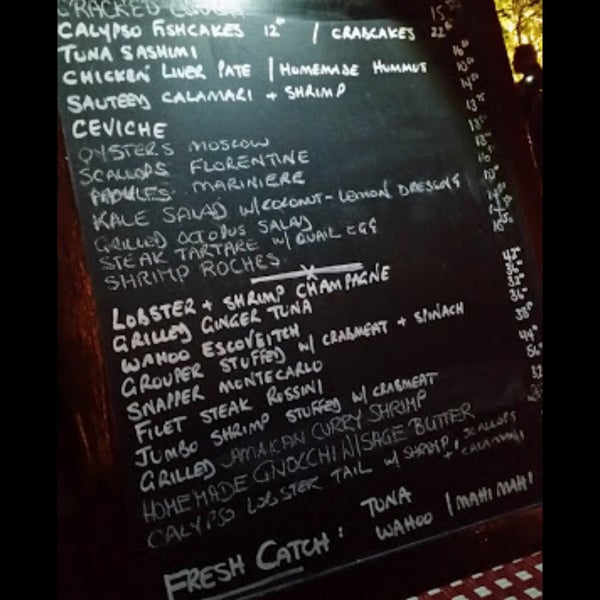 CRACKED CONCH 15
CALYPSO FISHCAKES 12 / CRABCAKES 22
TUNA SASHIMI
CHICKEN LIVER PATE / HOMEMADE HUMMUS
SAUTEED CALAMARI + SHRIMP
CEVICHE
OYSTERS MOSCOW
SCALLOPS FLORENTINE
MARINIERE
KALE SALAD W/COCONUT-LEMON DRESSING
GRILLED OCTOPUS SALAD
STEAK TARTARE W/ QUAIL EGG
SHRIMP ROCHES
LOBSTER + SHRIMP CHAMPAGNE
GRILLED GINGER TUNA
WAHOO ESCOVEITCH
GROUPER STUFFED W/ CRABMEAT + SPINACH
SNAPPER MONTECARLO
FILET STEAK ROSSINI
JUMBO SHRIMP STUFFED W/ CRABMEAT
GRILLED JAMAICAN CURRY SHRIMP
HOMEMADE GNOCCHI W/SAGE BUTTER
CALYPSO LOBSTER TAIL W/ SHRIMP, SCALLOPS + CALAMARI
FRESH CATCH: TUNA
WAHOO / MAHI MAHI